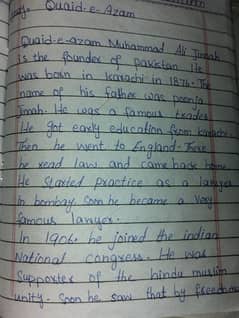 Quaid-e-Azam
Quaid-e-azam Muhammad Ali Jinnah
is the founder of pakistan He
was born in karachi in 1876. The
name of his father was poonja
Jinnah. He was a famous trader
He got early education from karachi.
Then he went to England. There
he read law and came back home
He started practice as a lawyer
in bombay. Soon he became a very
famous lawyer.
In 1906, he joined the indian
National congress. He was
supporter of the hindu muslim
unity. Soon he saw that by freedom